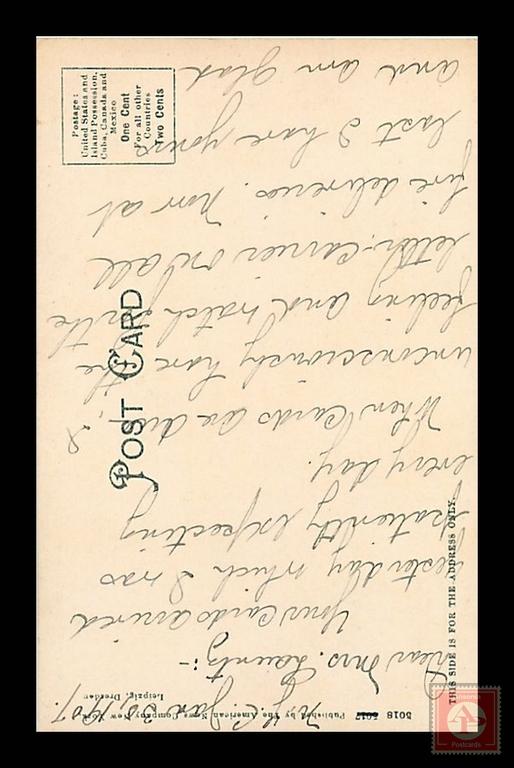 N.Y.C. Jan 30, 1907.
Dear Mrs.
Your Cards arrived
yesterday which I was
patiently expecting
every day.
When Cards are due, I
unconsciously have the
feeling and watch for the
letter-carrier on all
five deliveries. Now at
last I have yours
and am glad
POST CARD
Postage:
United States and
Island Possession,
Cuba, Canada and
Mexico
One Cent
For all other
Countries
Two Cents
THIS SIDE IS FOR THE ADDRESS ONLY.
5018 5017 Published by The American News Company, New York
Leipzig, Dresden
Postcards